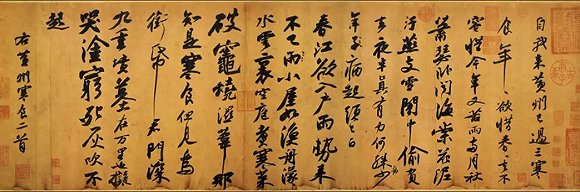 自我来黄州已過三寒
食年〻欲惜春春去不
容惜今年又苦雨兩月秋
蕭瑟卧聞海棠花泥
汙燕支雪闇中偷負
去夜半真有力何殊少
年子病起頭已白
春江欲入户雨勢来
不已雨小屋如漁舟濛〻
水雲裏空庖煮寒菜
破竈燒濕葦那
知是寒食但見烏
銜帋君門深
九重墳墓在万里也擬
哭塗窮死灰吹不
起
右黄州寒食二首